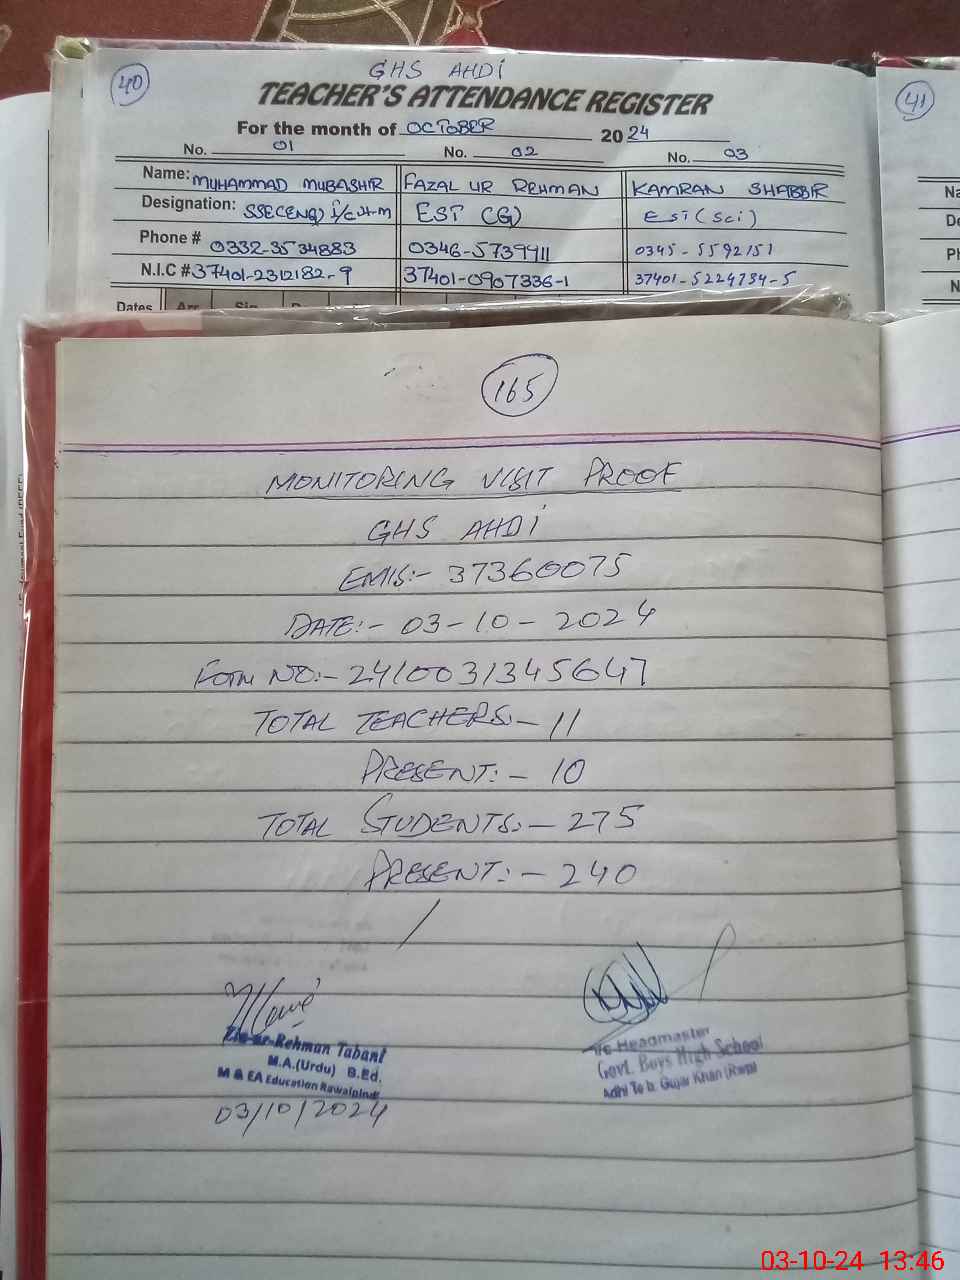 GHS AHDI
40
TEACHER'S ATTENDANCE REGISTER
41
For the month of OCTOBER 2024
No. 01 No. 02 No. 03
Name: MUHAMMAD MUBASHIR FAZAL UR REHMAN KAMRAN SHABBIR
Designation: SSE(ENG) i/c H-M EST (G) EST (Sci)
Phone # 0332-3534883 0346-5739911 0345-5592151
N.I.C # 37401-2312182-9 37401-0907336-1 37401-5224734-5
Dates Arr Sig
165
MONITORING VISIT PROOF
GHS AHDI
EMIS:- 37360075
DATE:- 03-10-2024
FORM NO:- 2410031345647
TOTAL TEACHERS:- 11
PRESENT:- 10
TOTAL STUDENTS:- 275
PRESENT:- 240
Zia-ur-Rehman Tabani
M.A.(Urdu) B.Ed.
M & EA Education Rawalpindi
03/10/2024
I/c Headmaster
Govt. Boys High School
Adhi Teh. Gujar Khan (Rwp)
03-10-24 13:46